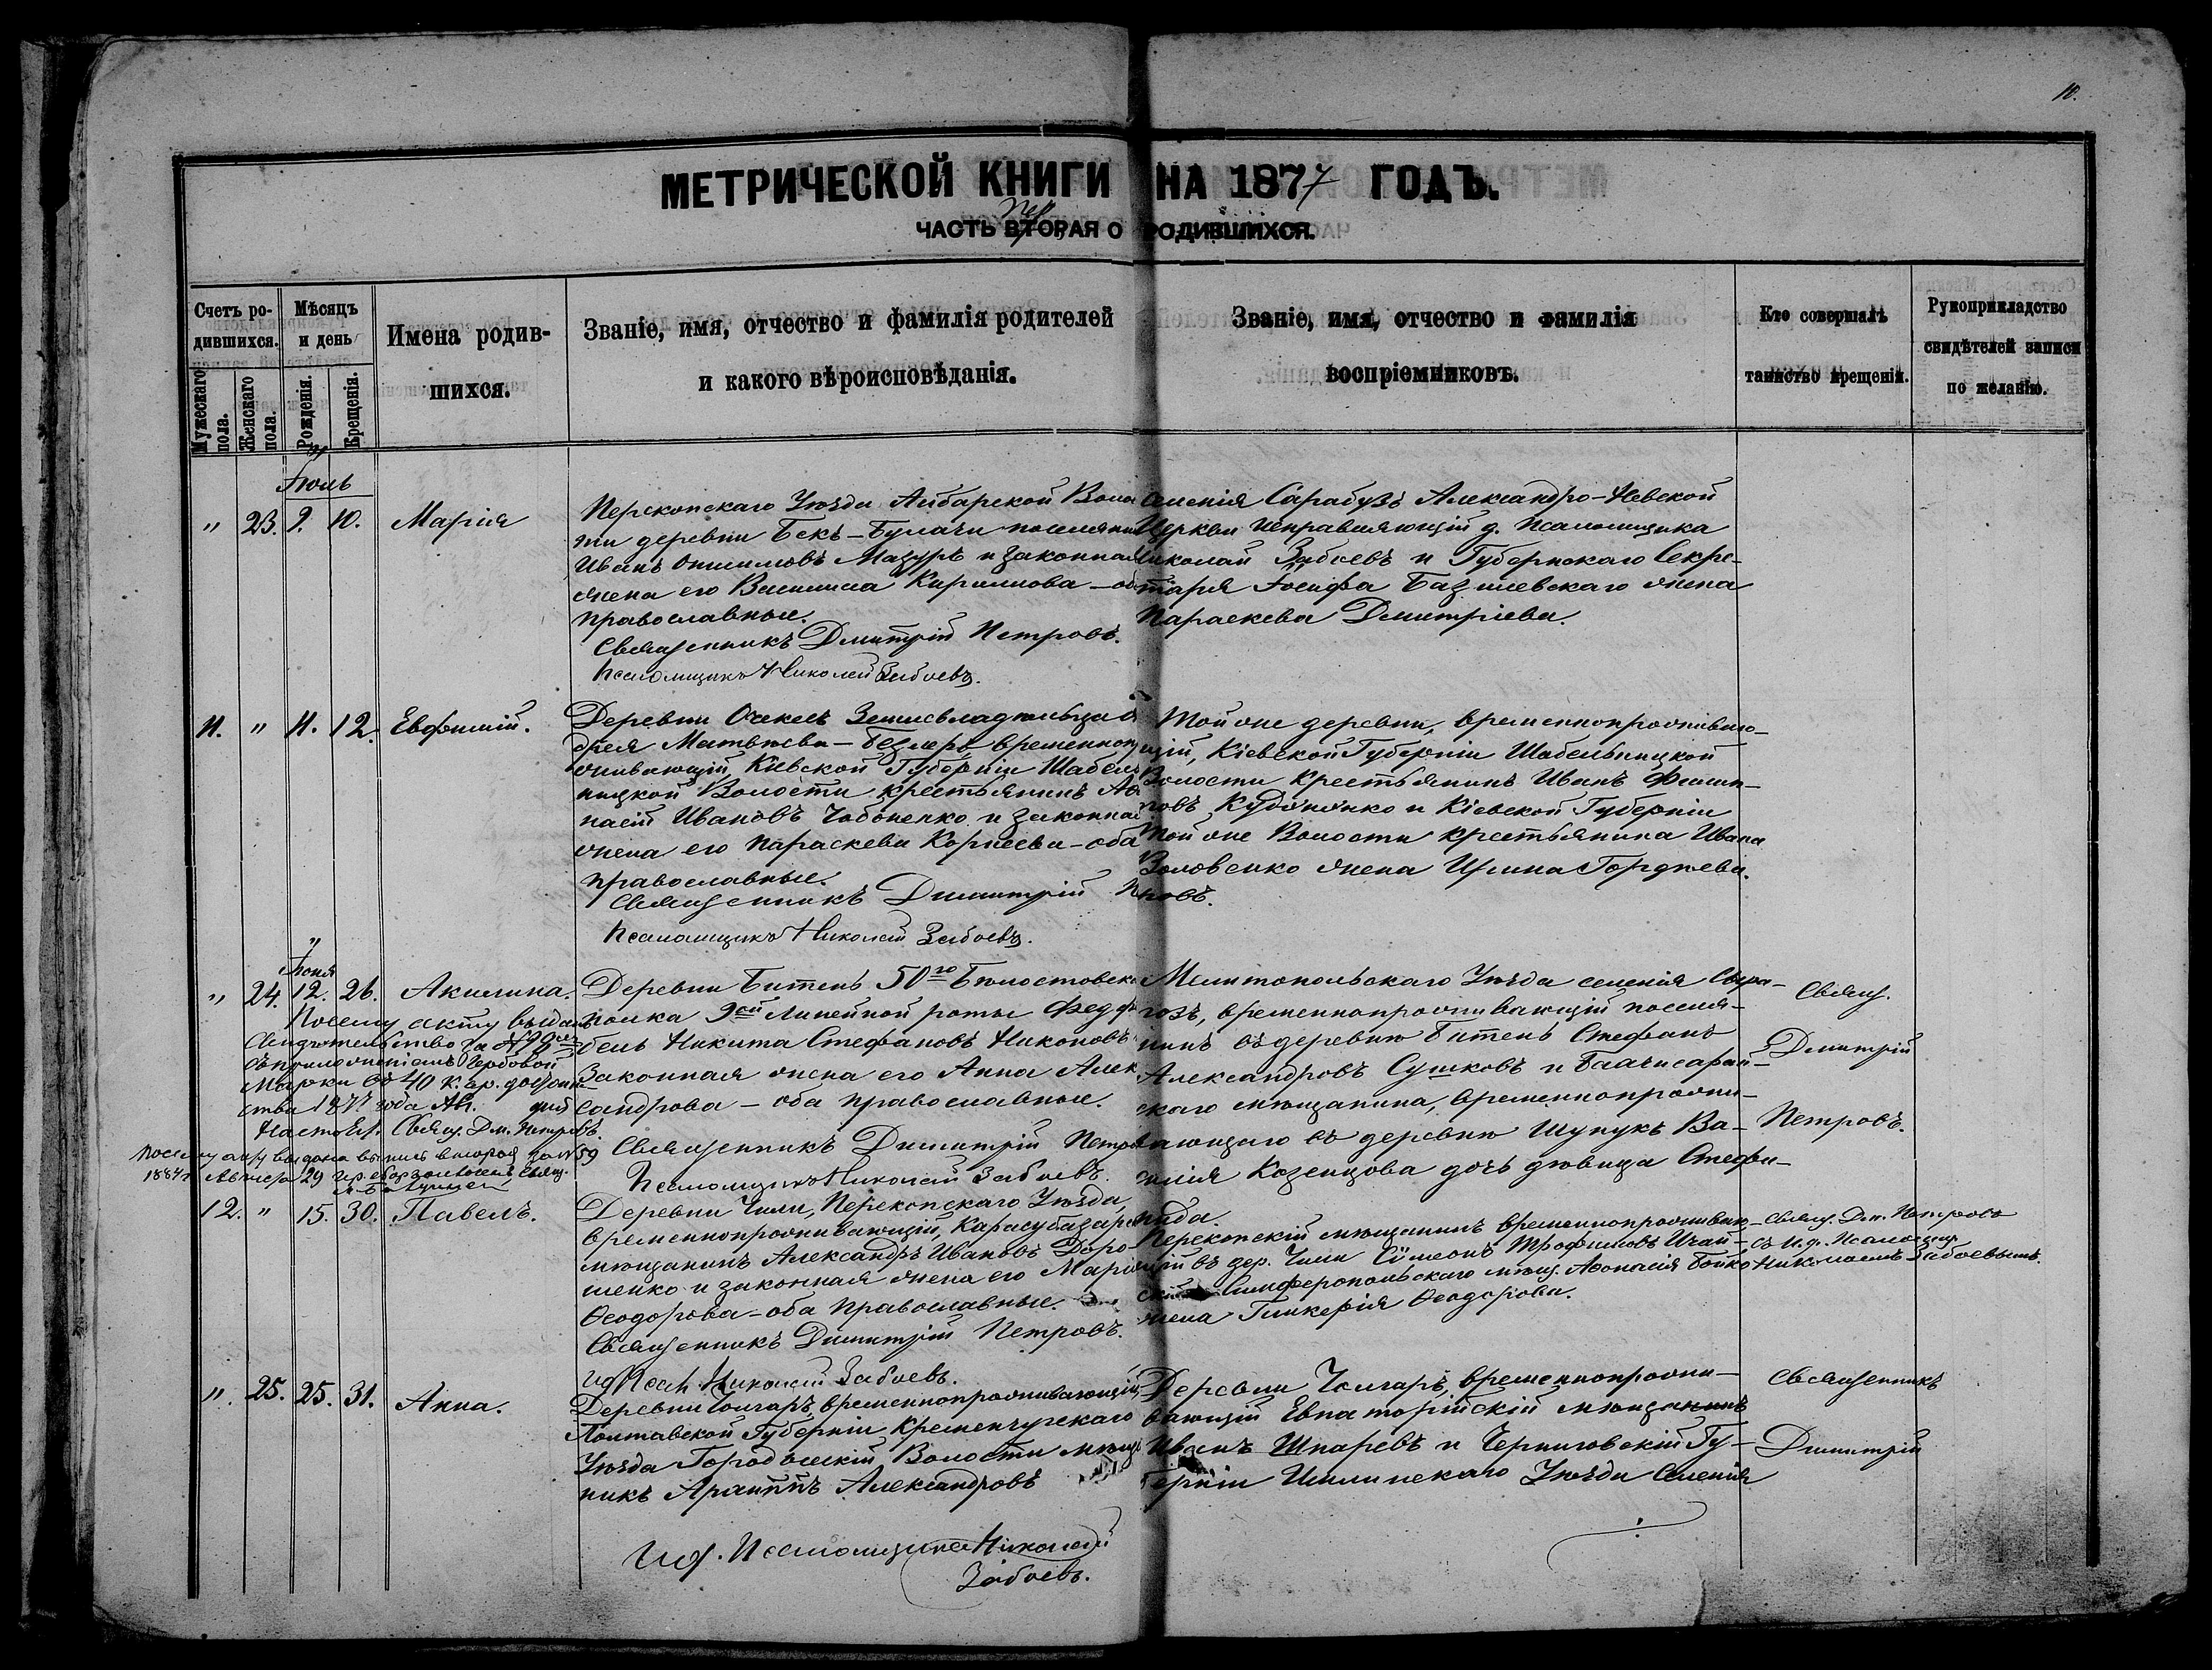 10.
МЕТРИЧЕСКОЙ КНИГИ НА 1877 ГОДЪ.
пер
ЧАСТЬ ВТОРАЯ О РОДИВШИХСЯ.
Счетъ ро-
дившихся.
Мужескаго
пола.
Женскаго
пола.
Мѣсяцъ
и день
Рожденія.
Крещенія.
Имена родив-
шихся.
Званіе, имя, отчество и фамилія родителей
и какого вѣроисповѣданія.
Званіе, имя, отчество и фамилія
воспріемниковъ.
Кто совершалъ
таинство крещенія.
Рукоприкладство
свидѣтелей записи
по желанію.
Іюль
" 23. 9. 10. Марія
Перекопскаго Уѣзда Айбарской Воло
сти деревни Бекъ-Булачи поселянин
Иванъ Онисимовъ Мазуръ и законная
жена его Василиса Кириллова – об
православные.
Священникъ Димитрій Петровъ.
Псаломщикъ Николай Забоевъ.
Селенія Сарабузъ Александро-Невской
Церкви исправляющій д. Псаломщика
Николай Забоевъ и Губернскаго Секре-
таря Іосифа Базилевскаго жена
Параскева Димитріева.
11. " 11. 12. Евфимій.
Деревни Очкелъ Землевладѣльца
дрея Матвѣева – Безлеръ временноп
живающій, Кіевской Губерніи Шабель
ницкой Волости крестьянинъ Аѳ
насій Ивановъ Чобоненко и законная
жена его Параскева Корнеева – оба
православные.
Священникъ Димитрій Пе
тровъ.
Псаломщикъ Николай Забоевъ.
Той же деревни, временнопроживаю-
щій, Кіевской Губерніи Шабельницкой
Волости крестьянинъ Иванъ Филип-
повъ и Кіевской Губерніи
той же Волости крестьянина Ивана
Воловенко жена Ирина Гордѣева.
"
Іюня
" 24. 12. 26. Акилина.
Посему акту выдано
Свидѣтельство за №
съ приложеніемъ Гербовой
Марки въ 40 к. ср. достоин-
ства 1877 года Ав. дня
Настоят. Свящ. Дм. Петровъ.
Посему акту выдана выпись вторая за №59
1884 г Августа 29 Свящ.
Деревни Битень 50го Бѣлостокска
полка 9ой Линейной роты Фельдфе
бель Никита Стефановъ Никоновъ
Законная жена его Анна Алек
сандрова – оба православные.
Священникъ Димитрій Петров
Псаломщикъ Николай Забоевъ.
Мелитопольскаго Уѣзда селенія Сѣра-
гозъ, временнопроживающій поселя-
нинъ въ деревнѣ Битень Стефанъ
Александровъ Сушковъ и Бахчисарай-
скаго мѣщанина, временнопрожи-
вающаго въ деревнѣ Шунукъ Ва-
силія Козенцова дочь дѣвица Стефа-
нида.
Свящ.
Димитрій
Петровъ.
12. " 15. 30. Павелъ.
Деревни Чили, Перекопскаго Уѣзда,
временнопроживающій, Карасубазарс
мѣщанинъ Александръ Ивановъ Доро-
шенко и законная жена его Марія
Ѳеодорова – оба православные.
Священникъ Димитрій Петровъ.
ид Псал. Николай Забоевъ.
Перекопскій мѣщанинъ временнопроживаю-
щій въ дер. Чили Сѵмеонъ Трофимовъ
Симферопольскаго мѣщ. Аѳанасія Бойко
жена Гликерія Ѳеодорова.
Свящ. Дм. Петровъ
съ и.д. Псаломщ.
Николаемъ Забоевымъ.
". 25. 25. 31. Анна.
Деревни Чонгаръ, временнопроживающій,
Полтавской Губерніи Кременчугскаго
Уѣзда Волости мѣща
никъ Александровъ
Деревни Чонгаръ, временнопрожи-
вающій Евпаторійскій мѣщанинъ
Иванъ Шпаревъ и Черниговскій Гу-
берніи Уѣзда Селенія
Священникъ
Димитрій
Ид. Псаломщика Николай
Забоевъ.